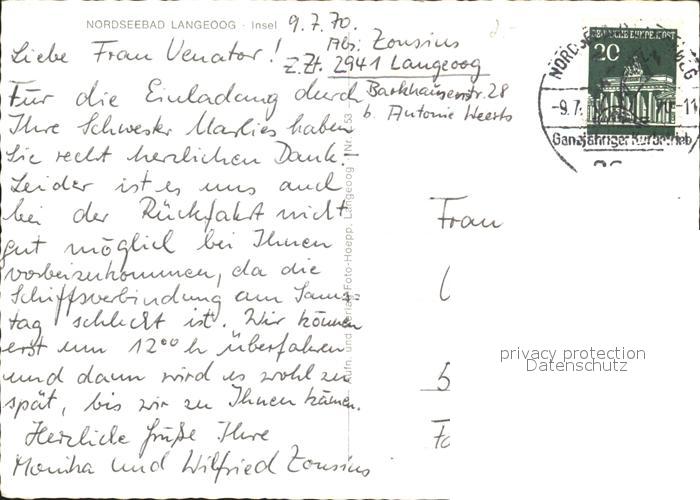 NORDSEEBAD LANGEOOG - Insel
9.7.70.
Abs. Zousius
z.Zt. 2941 Langeoog
Barkhausenstr. 28
b. Antonie Weerts
Liebe Frau Venator!
Für die Einladung durch
Ihre Schwester Marlies haben
Sie recht herzlichen Dank.
Leider ist es uns auch
bei der Rückfahrt nicht
gut möglich bei Ihnen
vorbeizukommen, da die
Schiffsverbindung am Sams=
tag schlecht ist. Wir können
erst um 12⁰⁰ h überfahren
und dann wird es wohl zu
spät, bis wir zu Ihnen kämen.
Herzliche Grüße Ihre
Monika und Wilfried Zousius
Aufn. und Verlag Foto-Hoepp, Langeoog Nr. 53
DEUTSCHE BUNDESPOST
20
-9.7.
-11
Ganzjähriger Kurbetrieb
Frau
5
privacy protection
Datenschutz